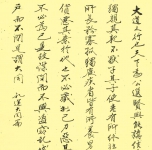 大道之行也天下為公選賢與能講信修
獨親其親不獨子其子使老有所終壯
所長矜寡孤獨廢疾者皆有所養男
惡其棄於地也不必藏於己力惡其
不必為己是故謀閉而不興盜竊亂
戶而不閉是謂大同 禮運大同篇